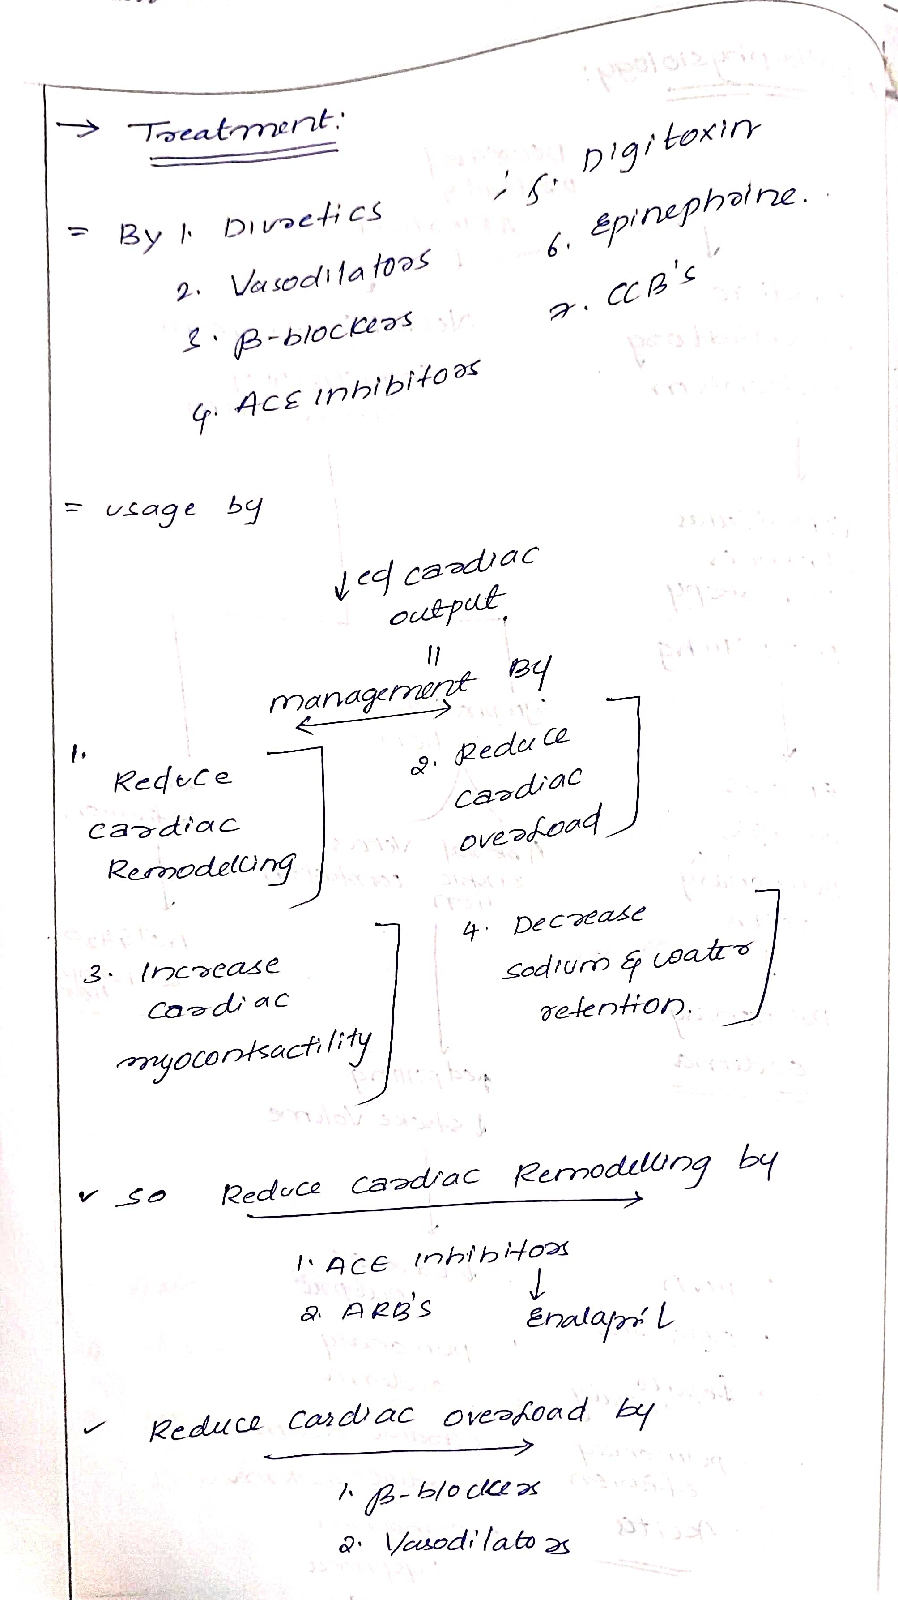 → Treatment:
= By 1. Diuretics
2. Vasodilators
3. β-blockers
4. ACE inhibitors
5. Digitoxin
6. Epinephrine.
7. CCB's
= usage by
↓ed cardiac
output
||
management By
1. Reduce
cardiac
Remodelling
2. Reduce
cardiac
overload
3. Increase
cardiac
myocontractility
4. Decrease
sodium & water
retention.
✓ so Reduce cardiac Remodelling by
1. ACE inhibitors
↓
2. ARB's Enalapril
✓ Reduce cardiac overload by
1. β-blockers
2. Vasodilators